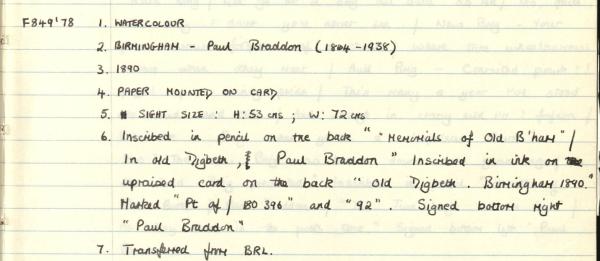 F849'78 1. WATERCOLOUR
2. BIRMINGHAM - Paul Braddon (1864-1938)
3. 1890
4. PAPER MOUNTED ON CARD
5. SIGHT SIZE : H: 53 cms ; W: 72 cms
6. Inscribed in pencil on the back " "Memorials of Old B'ham" /
In old Digbeth, Paul Braddon " Inscribed in ink on
upraised card on the back " Old Digbeth. Birmingham 1890."
Marked "Pt of / 180396" and "92". Signed bottom right
"Paul Braddon"
7. Transferred from BRL.